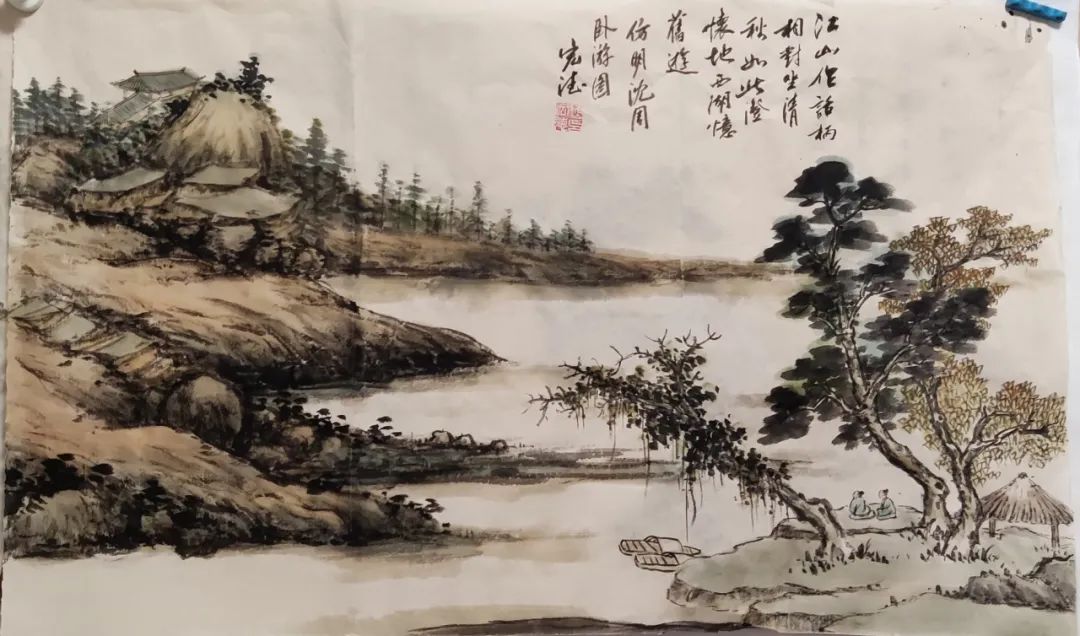 江山作話柄
相對坐清
秋如此澄
懷地西湖憶
舊遊
仿明沈周
卧游图